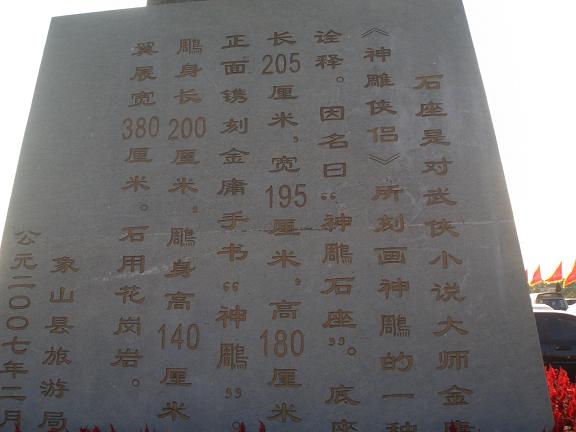 石座是对武侠小说大师金庸
《神雕侠侣》所刻画神雕的一种
诠释。因名曰“神雕石座”。底座
长205厘米，宽195厘米，高180厘
正面镌刻金庸手书“神雕”。
雕身长200厘米，雕身高140厘米
翼展宽380厘米。石用花岗岩。
象山县旅游局
公元二〇〇七年二月